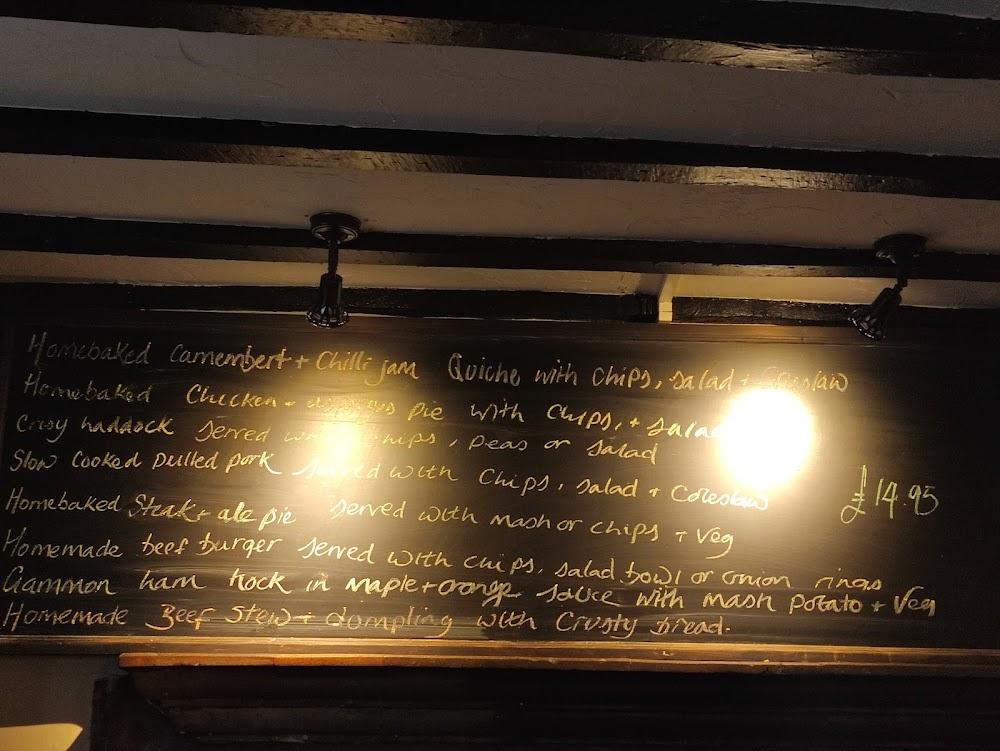 Homebaked Camembert + Chilli jam Quiche with chips, salad + Coleslaw
Homebaked Chicken + pie with chips, + salad
Crisy haddock served with chips, peas or salad
Slow Cooked pulled pork served with chips, salad + Coleslaw
£14.95
Homebaked Steak + ale pie served with mash or chips + Veg
Homemade beef burger served with chips, salad bowl or onion rings
Gammon ham hock in maple + orange sauce with mash potato + Veg
Homemade Beef Stew + dumpling with Crusty bread.